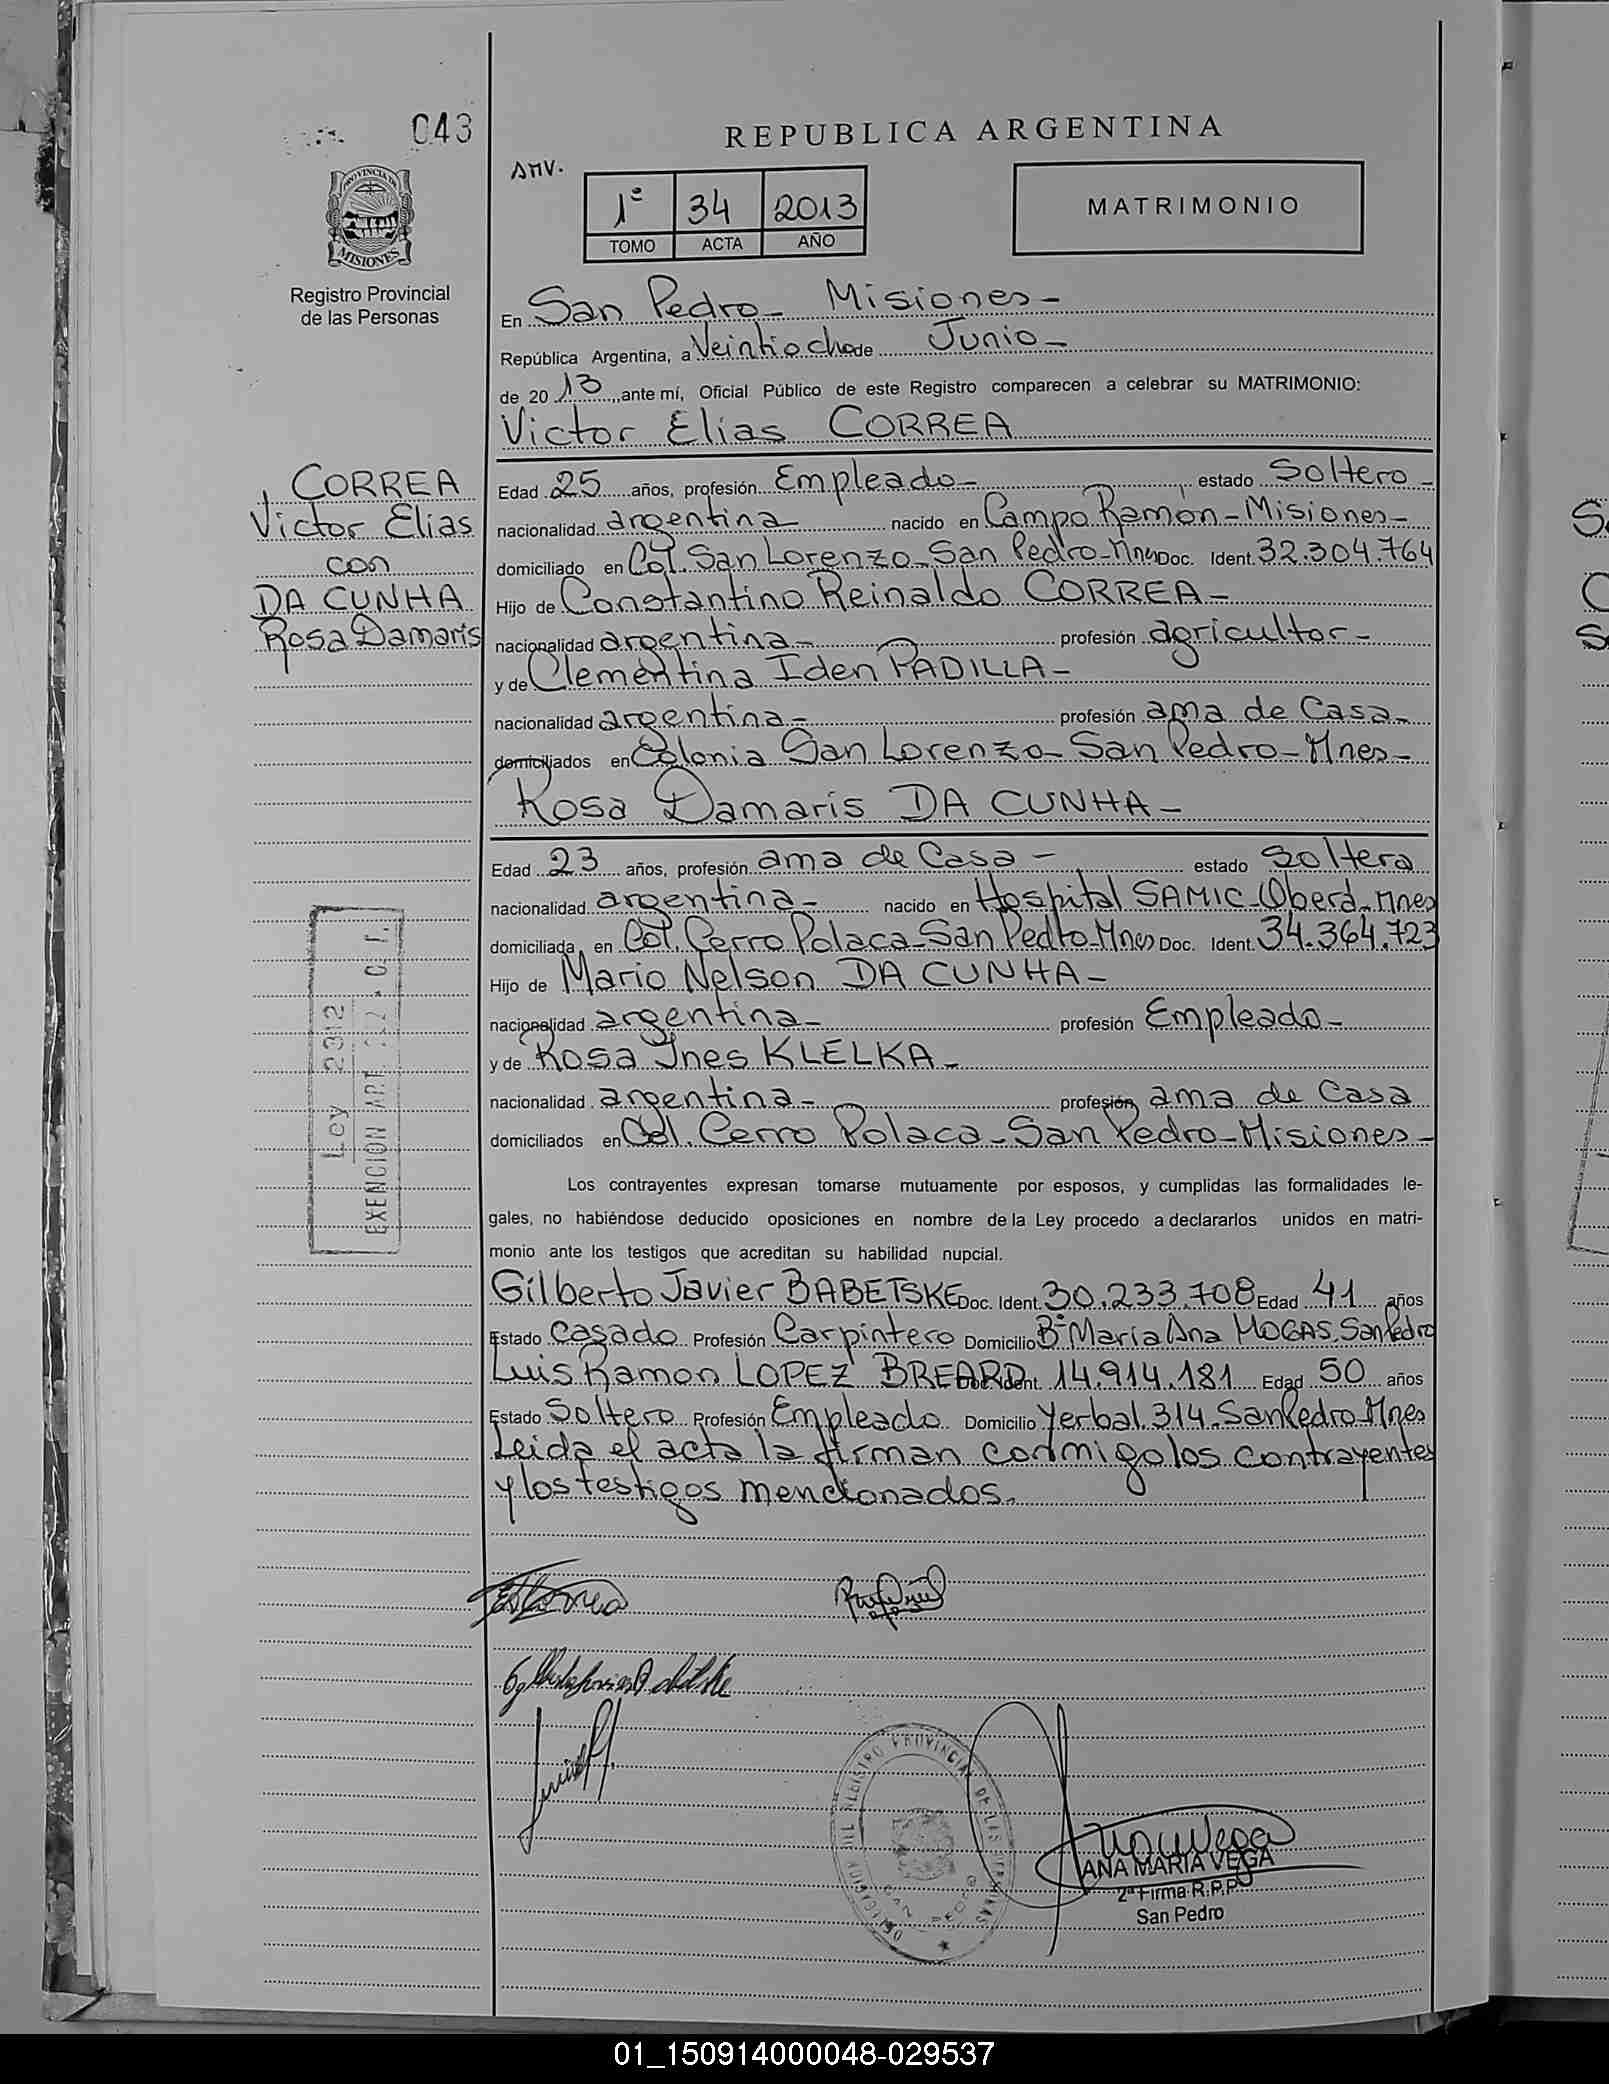 043
REPUBLICA ARGENTINA
ANV.
1º 34 2013
TOMO ACTA AÑO
MATRIMONIO
PROVINCIA DE
MISIONES
Registro Provincial
de las Personas
En San Pedro - Misiones -
República Argentina, a Veintiocho de Junio -
de 20 13 ,,ante mí, Oficial Público de este Registro comparecen a celebrar su MATRIMONIO:
Victor Elias CORREA
CORREA
Victor Elias
con
DA CUNHA
Rosa Damaris
Edad 25 años, profesión Empleado - estado Soltero -
nacionalidad argentina nacido en Campo Ramón - Misiones -
domiciliado en Col. San Lorenzo - San Pedro - Mnes Doc. Ident. 32.304.764
Hijo de Constantino Reinaldo CORREA -
nacionalidad argentina - profesión agricultor -
y de Clementina Iden PADILLA -
nacionalidad argentina - profesión ama de Casa -
domiciliados en Colonia San Lorenzo - San Pedro - Mnes -
Rosa Damaris DA CUNHA -
Edad 23 años, profesión ama de Casa - estado Soltera
nacionalidad argentina - nacido en Hospital SAMIC - Oberá - Mnes
domiciliada en Col. Cerro Polaca - San Pedro - Mnes Doc. Ident. 34.364.723
Hijo de Mario Nelson DA CUNHA -
nacionalidad argentina - profesión Empleado -
y de Rosa Ines KLELKA -
nacionalidad argentina - profesión ama de Casa
domiciliados en Col. Cerro Polaca - San Pedro - Misiones -
Ley 2312
EXENCION ART.
Los contrayentes expresan tomarse mutuamente por esposos, y cumplidas las formalidades le-
gales, no habiéndose deducido oposiciones en nombre de la Ley procedo a declararlos unidos en matri-
monio ante los testigos que acreditan su habilidad nupcial.
Gilberto Javier BABETSKE Doc. Ident. 30.233.708 Edad 41 años
Estado Casado Profesión Carpintero Domicilio Bº Maria Ana MOGAS. San Pedro
Luis Ramon LOPEZ BREARD Doc. Ident. 14.914.181 Edad 50 años
Estado Soltero Profesión Empleado Domicilio Yerbal. 314. San Pedro - Mnes
Leida el acta la firman conmigo los contrayentes
y los testigos mencionados.
DELEGACION DEL REGISTRO PROVINCIAL DE LAS PERSONAS
SAN PEDRO
ANA MARIA VEGA
2ª Firma R.P.P
San Pedro
01_150914000048-029537